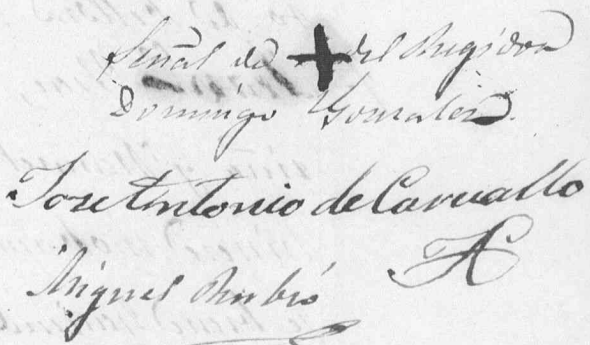 Señal de + del Regidor
Domingo Gonzalez.
Jose Antonio de Carvallo
Miguel Rubió